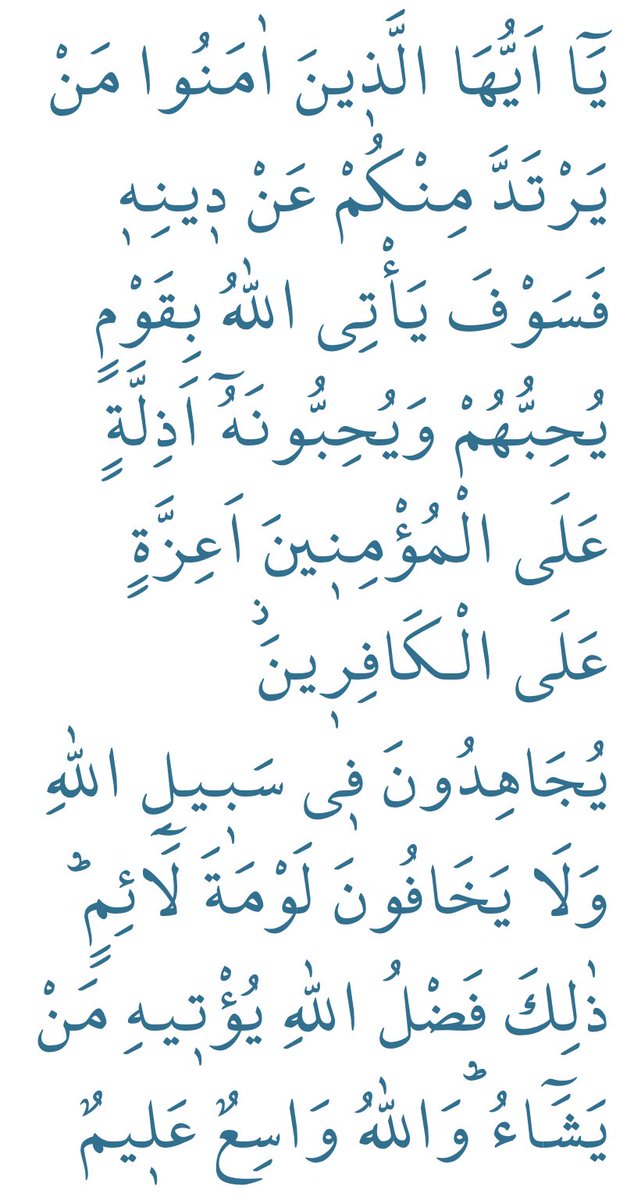 يَٓا اَيُّهَا الَّذ۪ينَ اٰمَنُوا مَنْ
يَرْتَدَّ مِنْكُمْ عَنْ د۪ينِه۪
فَسَوْفَ يَأْتِى اللّٰهُ بِقَوْمٍ
يُحِبُّهُمْ وَيُحِبُّونَهُٓ اَذِلَّةٍ
عَلَى الْمُؤْمِن۪ينَ اَعِزَّةٍ
عَلَى الْكَافِر۪ينَۘ
يُجَاهِدُونَ ف۪ى سَبيلِ اللّٰهِ
وَلَا يَخَافُونَ لَوْمَةَ لَٓائِمٍؕ
ذٰلِكَ فَضْلُ اللّٰهِ يُؤْت۪يهِ مَنْ
يَشَٓاءُؕ وَاللّٰهُ وَاسِعٌ عَل۪يمٌ